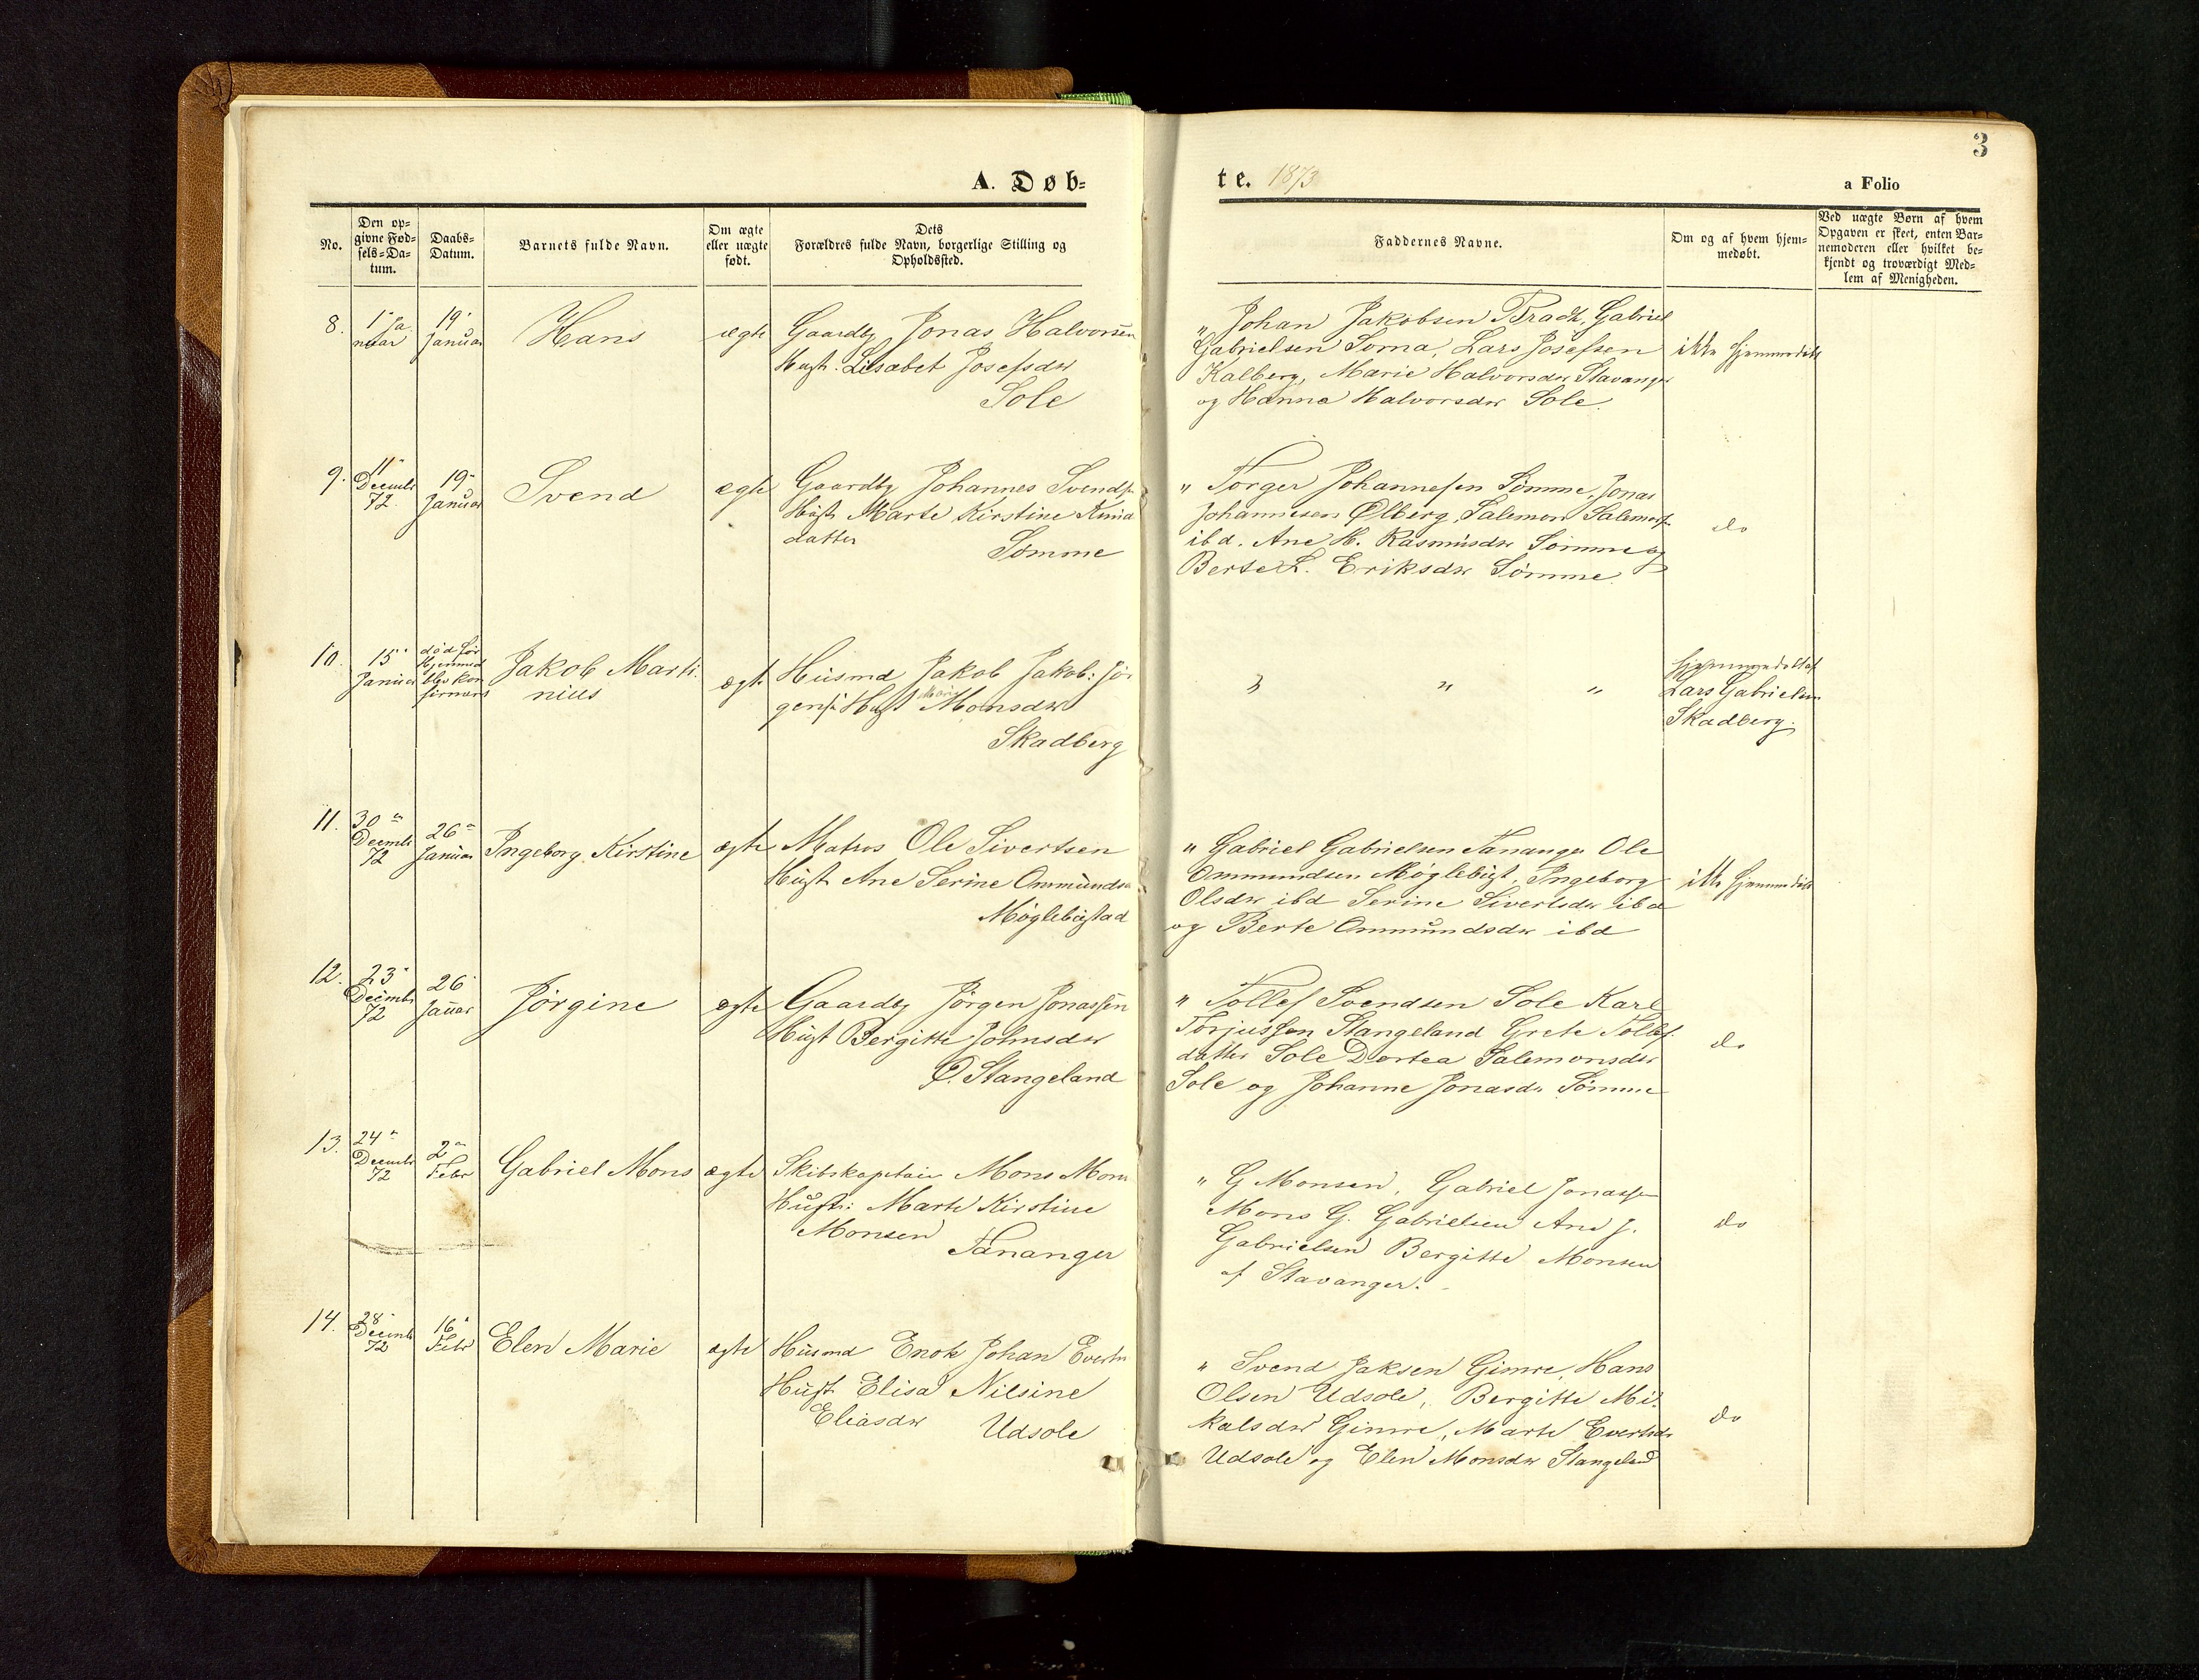 3
A. Døb-
te. 1873
a Folio
No.
Den op-
givne Fød-
sels-Da-
tum.
Daabs-
Datum.
Barnets fulde Navn.
Om ægte
eller uægte
født.
Dets
Forældres fulde Navn, borgerlige Stilling og
Opholdssted.
Faddernes Navne.
Om og af hvem hjem-
medøbt.
Ved uægte Børn af hvem
Opgaven er skeet, enten Bar-
nemoderen eller hvilket be-
kjendt og troværdigt Med-
lem af Menigheden.
8.
1 Ja
nuar
19
Januar
Hans
ægte
Gaardbr Jonas Halvorsen
Hust. Lisabet Josefsdr
Sole
" Johan Jakobsen Gabriel
Gabrielsen Soma, Lars Josefsen
Kalberg, Marie Halvorsdr Stavanger
og Hanna Halvorsdr Sole.
ikke hjemmedøbt
9.
11
Decembr
72.
19
Januar
Svend
ægte
Gaardbr Johannes Svends.
Hust Marte Kirstine
datter
Sømme
" Torger Johannesen Sømme, Jonas
Johannesen Ølberg, Salemon Salemons.
ibd. Ane H. Rasmusdr Sømme og
Berte L. Eriksdr Sømme.
do
10.
15
Januar
død før
Hjemmed
blev kon
firmert
Jakob Marti
nius
ægte
Husmd Jakob Jakob: Jør
gens. Hust Mari Monsdr
Skadberg
" " "
hjemmedøbt af
Lars Gabrielsen
Skadberg.
11.
30
Decembr
72
26
Januar
Ingeborg Kirstine
ægte
Matros Ole Sivertsen
Hust Ane Serine Ommundsd
Møglebustad
" Gabriel Gabrielsen Tananger Ole
Ommundsen Møglebust, Ingeborg
Olsdr ibd Serine Sivertsdr ibd
og Berte Ommundsdr ibd
ikke hjemmedøbt
12.
23
Decembr
72
26
Januar
Jørgine
ægte
Gaardbr Jørgen Jonassen
Hust Bergitte Johnsdr
Ø. Stangeland
" Tollef Svendsen Sole Karl
Torjussen Stangeland Grete Tollef.
datter Sole Dortea Salemonsdr
Sole og Johanne Jonasdr Sømme
do
13.
24
Decembr
72
2
Febr
Gabriel Mons
ægte
Skibskaptain Mons Mons
Hustr: Marte Kirstine
Monsen
Tananger
" G Monsen, Gabriel Jonassen
Mons G. Gabrielsen Ane J.
Gabrielsen Bergitte Monsen
af Stavanger.
do
14.
28
Decembr
72
16
Febr
Elen Marie
ægte
Husmd Enok Johan Evertsn
Hust Elisa Nilsine
Eliasdr
Udsole
" Svend Jaksen Gimre, Hans
Olsen Udsole, Bergitte Mi-
kalsdr Gimre, Marte Evertsdr
Udsole og Elen Monsdr Stangeland
do